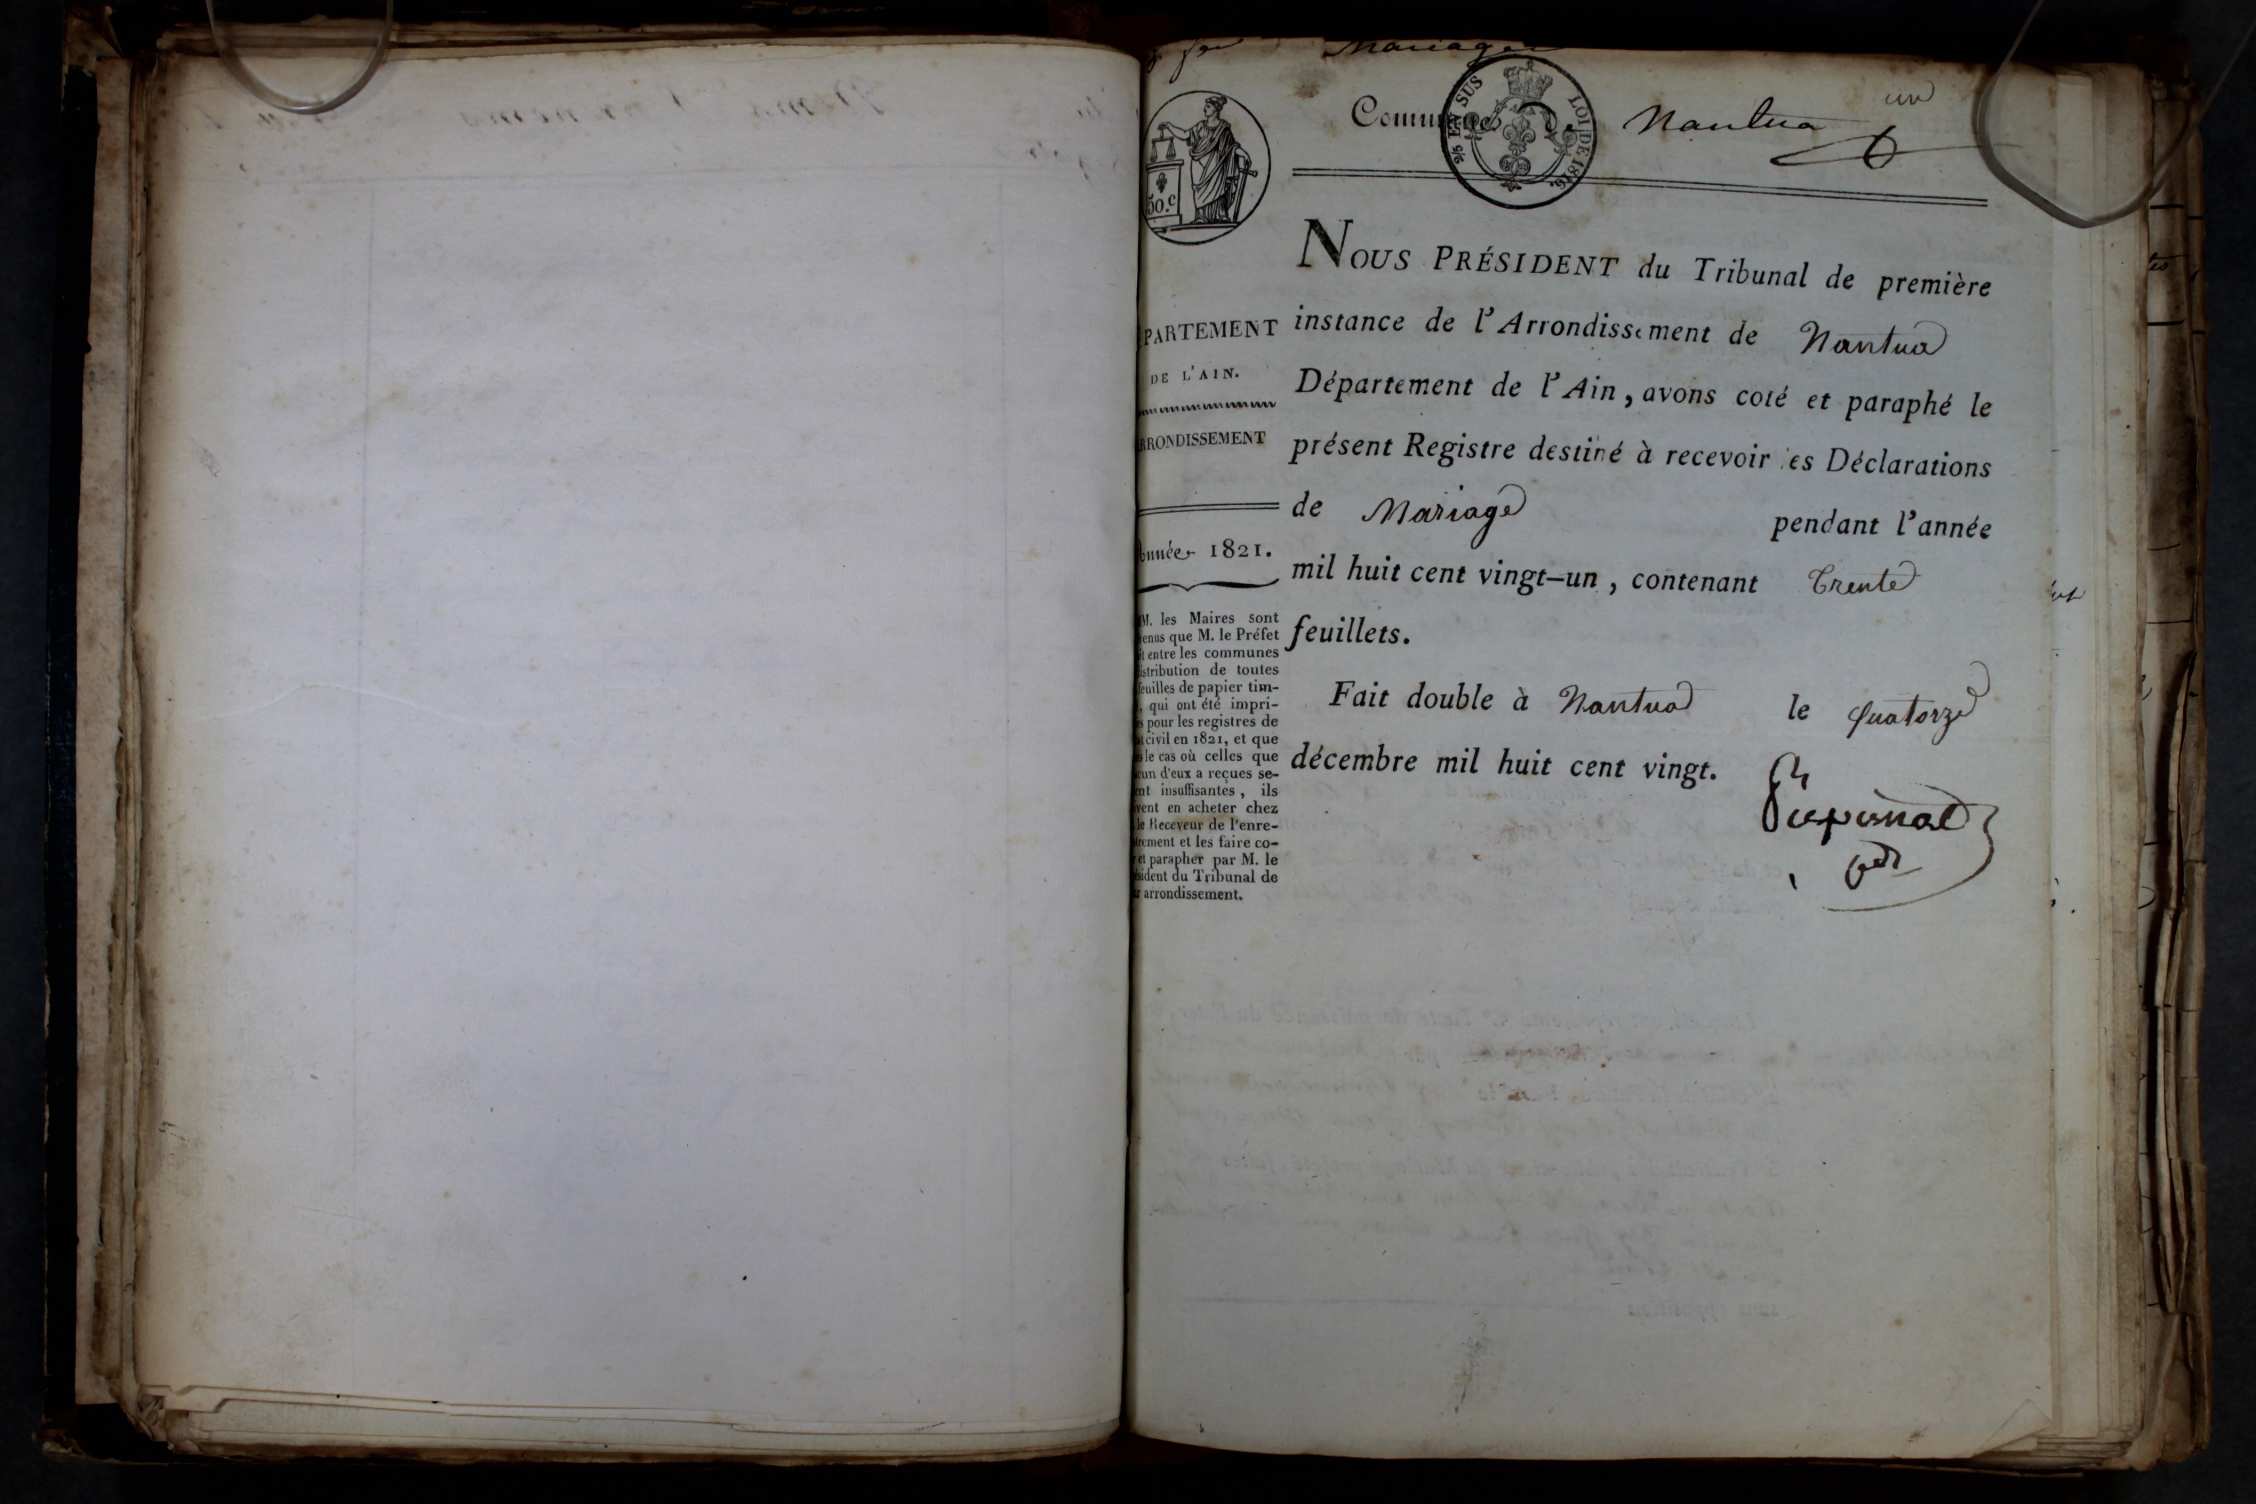 Mariages
Commune de Nantua
un
25 EN SUS LOI DE 1816.
50.c
PARTEMENT
DE L'AIN.
RRONDISSEMENT
nnée 1821.
M. les Maires sont
enus que M. le Préfet
it entre les communes
istribution de toutes
feuilles de papier tim-
, qui ont été impri-
s pour les registres de
t civil en 1821, et que
s le cas où celles que
cun d'eux a reçues se-
ent insuffisantes, ils
vent en acheter chez
le Receveur de l'enre-
trement et les faire co-
r et parapher par M. le
ésident du Tribunal de
r arrondissement.
NOUS PRÉSIDENT du Tribunal de première
instance de l'Arrondissement de Nantua
Département de l'Ain, avons coté et paraphé le
présent Registre destiné à recevoir les Déclarations
de Mariage pendant l'année
mil huit cent vingt-un, contenant Trente
feuillets.
Fait double à Nantua le quatorze
décembre mil huit cent vingt.